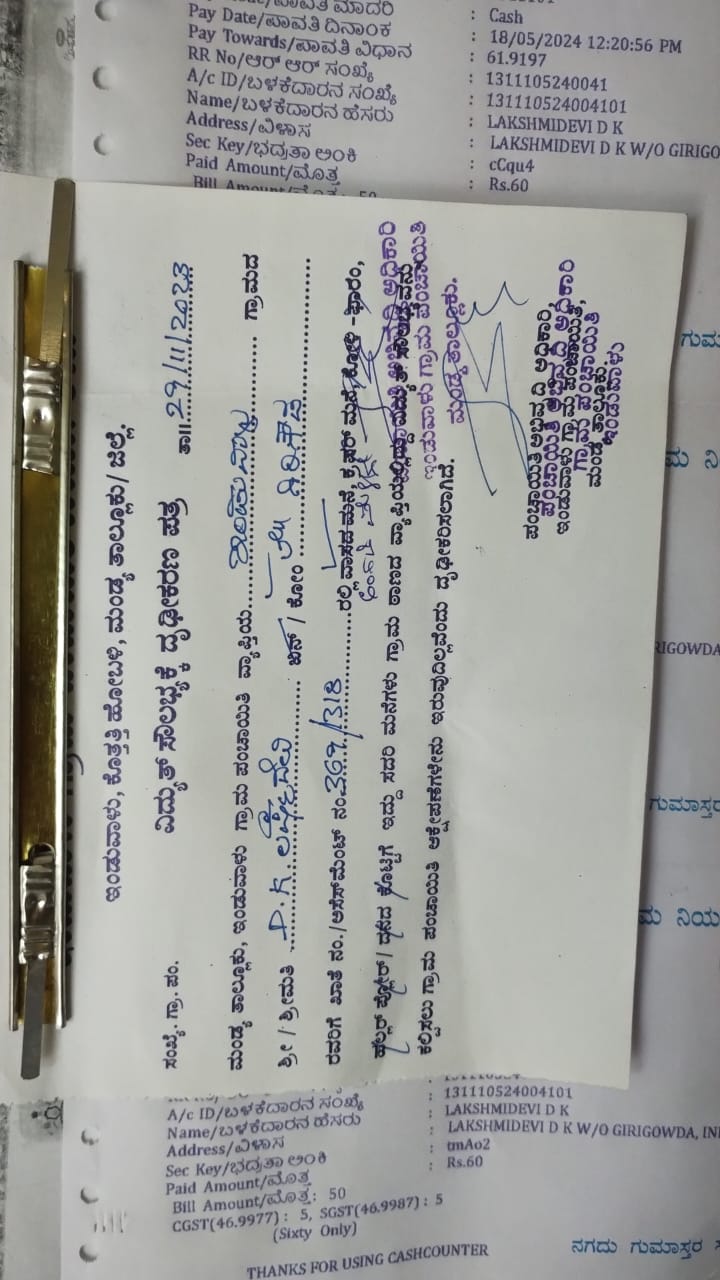 Pay Date/ಪಾವತಿ ದಿನಾಂಕ : Cash
Pay Towards/ಪಾವತಿ ವಿಧಾನ : 18/05/2024 12:20:56 PM
RR No/ಆರ್ ಆರ್ ಸಂಖ್ಯೆ : 61.9197
A/c ID/ಬಳಕೆದಾರನ ಸಂಖ್ಯೆ : 1311105240041
Name/ಬಳಕೆದಾರನ ಹೆಸರು : 131110524004101
Address/ವಿಳಾಸ : LAKSHMIDEVI D K
Sec Key/ಭದ್ರತಾ ಅಂಕಿ : LAKSHMIDEVI D K W/O GIRIGO
Paid Amount/ಮೊತ್ತ : cCqu4
Bill Amount/ಮೊತ್ತ: 50 : Rs.60
ಇಂಡುವಾಳು, ಕೊತ್ತತ್ತಿ ಹೋಬಳಿ, ಮಂಡ್ಯ ತಾಲ್ಲೂಕು/ ಜಿಲ್ಲೆ.
ವಿದ್ಯುತ್ ಸೌಲಭ್ಯಕ್ಕೆ ದೃಢೀಕರಣ ಪತ್ರ
ಸಂಖ್ಯೆ. ಗ್ರಾ. ಪಂ. ತಾ॥ 29/11/2023
ಮಂಡ್ಯ ತಾಲ್ಲೂಕು, ಇಂಡುವಾಳು ಗ್ರಾಮ ಪಂಚಾಯಿತಿ ವ್ಯಾಪ್ತಿಯ ಇಂಡುವಾಳು ಗ್ರಾಮದ
ಶ್ರೀ / ಶ್ರೀಮತಿ D.K. ಲಕ್ಷ್ಮೀದೇವಿ ಬಿನ್ / ಕೋಂ ಗಿರಿಗೌಡ
ರವರಿಗೆ ಖಾತೆ ನಂ./ಅಸೆಸ್‌ಮೆಂಟ್ ನಂ. 369/318 ರಲ್ಲಿ ವಾಸದ ಮನೆ, ಕೋಳಿ -ಫಾರಂ,
ಹಲ್ಲರ್ ಫ್ಲೋರ್ / ದನದ ಕೊಟ್ಟಿಗೆ ಇದ್ದು ಸದರಿ ಮನೆಗಳು ಗ್ರಾಮ ಠಾಣದ ವ್ಯಾಪ್ತಿಯಲ್ಲಿದ್ದು
ಕಲ್ಪಿಸಲು ಗ್ರಾಮ ಪಂಚಾಯಿತಿ ಆಕ್ಷೇಪಣೆಗಳೇನು ಇರುವುದಿಲ್ಲವೆಂದು ದೃಢೀಕರಿಸಲಾಗಿದೆ.
ಇಂಡುವಾಳು ಗ್ರಾಮ ಪಂಚಾಯಿತಿ
ಮಂಡ್ಯ ತಾಲ್ಲೂಕು.
ಪಂಚಾಯಿತಿ ಅಭಿವೃದ್ಧಿ ಅಧಿಕಾರಿ,
ಇಂಡುವಾಳು ಗ್ರಾಮ ಪಂಚಾಯಿತಿ,
ಮಂಡ್ಯ ತಾಲ್ಲೂಕು
ಪಂಚಾಯಿತಿ ಅಭಿವೃದ್ಧಿ ಅಧಿಕಾರಿ
ಗ್ರಾಮ ಪಂಚಾಯಿತಿ
ಇಂಡುವಾಳು
ಗುಮ
ಮ ನಿ
RIGOWDA
ಗುಮಾಸ್ತರ
ಮ ನಿಯ
A/c ID/ಬಳಕೆದಾರನ ಸಂಖ್ಯೆ : 131110524004101
Name/ಬಳಕೆದಾರನ ಹೆಸರು : LAKSHMIDEVI D K
Address/ವಿಳಾಸ : LAKSHMIDEVI D K W/O GIRIGOWDA, IN
Sec Key/ಭದ್ರತಾ ಅಂಕಿ : tmAo2
Paid Amount/ಮೊತ್ತ : Rs.60
Bill Amount/ಮೊತ್ತ: 50
CGST(46.9977) : 5, SGST(46.9987) : 5
(Sixty Only)
THANKS FOR USING CASHCOUNTER
ನಗದು ಗುಮಾಸ್ತರ